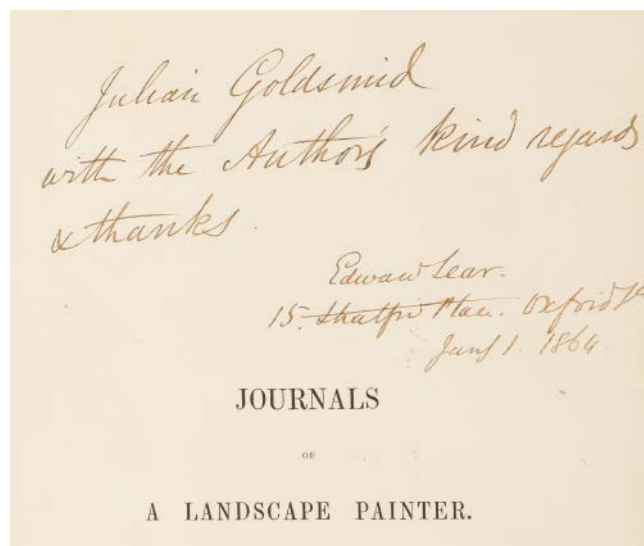 Julian Goldsmid
with the Author's kind regards
& thanks.
Edward Lear.
15. Stratford Place. Oxford St
1. 1864
JOURNALS
OF
A LANDSCAPE PAINTER.